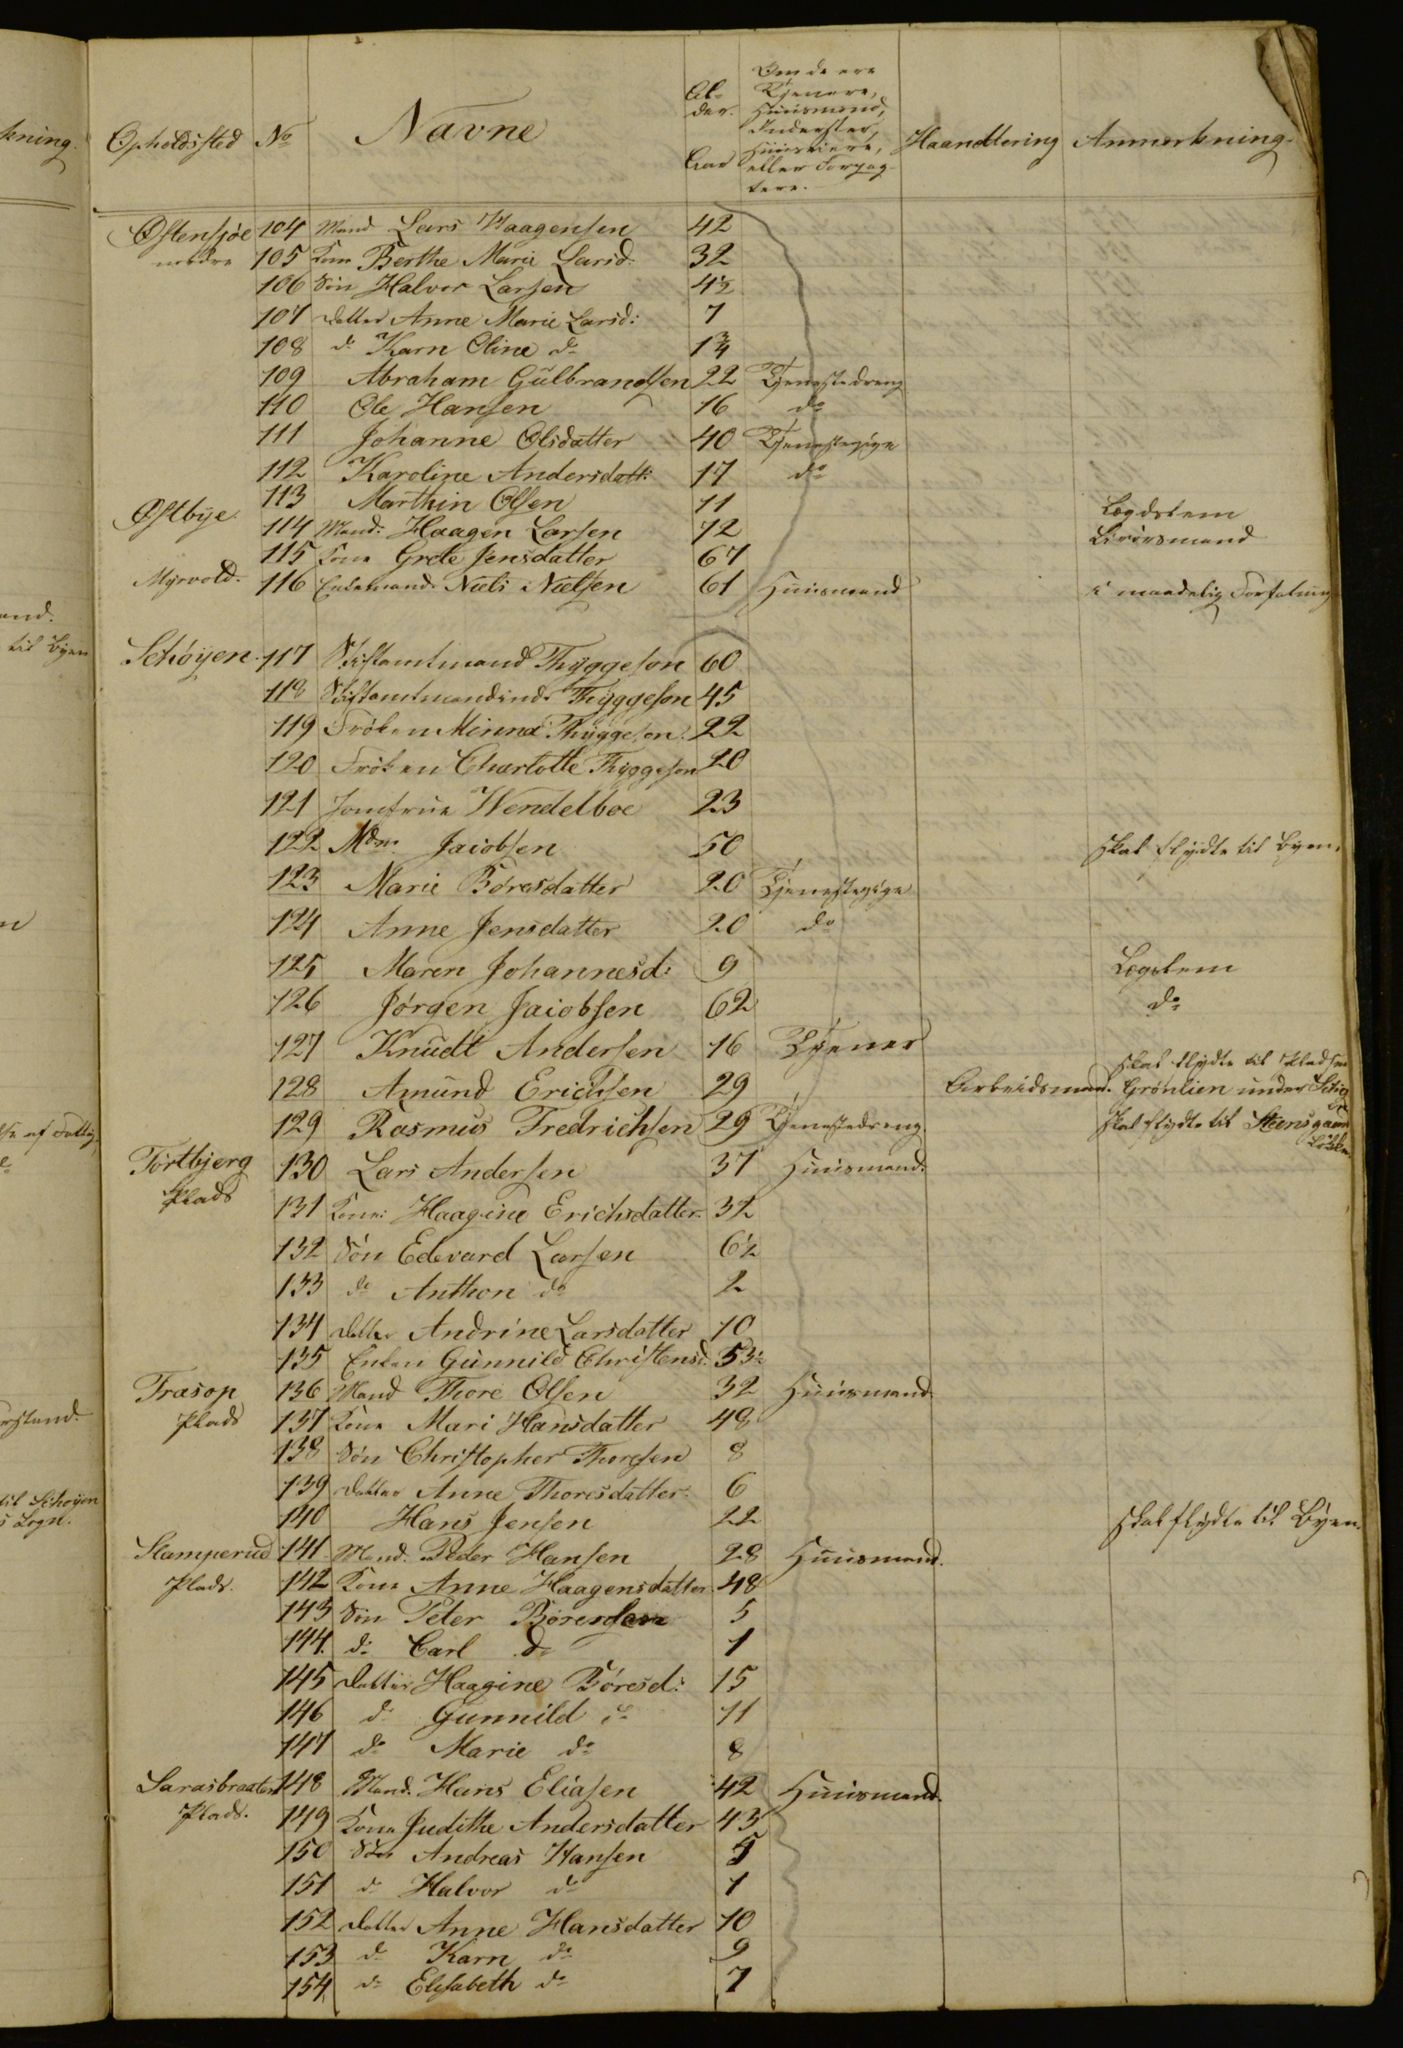 kning.
Opholdssted No Navne Al- der. Aar Om de ere Tjenere, Huusmænd, Inderster, eller Forpag- tere. Haandtering Anmerkning.
Østensjøe 104 Mand Lars Haagensen 42
nedre 105 Kone Berthe Marie Larsd. 32
106 Søn Halvor Larsen 4½
107 Datter Anne Marie Larsd: 7
108 do Karn Oline do 1¾
109 Abraham Gulbrandsen 22 Tjenestedreng
110 Ole Hansen 16 do
111 Johanne Olsdatter 40 Tjenestepige
112 Karoline Andersdatt: 17 do
113 Marthin Olsen 11 Lægdslem
Østbye. 114 Mand. Haagen Larsen 72
115 Kone Grete Jensdatter 67
Myrvold. 116 Enkemand Niels Nielsen 61 Huusmand i maadelig Forfatning
Schøyen. 117 Stiftamtmand Thyggeson 60
118 Stiftamtmandinde Thyggeson 45
119 Frøken Thyggeson. 22
120 Frøken Charlotte Thyggeson 20
121 Jomfrue Wendelboe 23
122 Mdm. Jaiobsen 50 skal flydte til Byen.
123 Marie Børesdatter 20 Tjenestepige
124 Anne Jensdatter 20 do
125 Maren Johannesd: 9 Lægslem
126 Jørgen Jaiobsen 62 do
127 Knudt Andersen 16 Tjener
128 Amund Erichsen 29 Arbeidsmand. skal flydte til Pladsen Grønlien under
129 Rasmus Fredrichsen 29 Tjenestedreng. skal flydte til Steensgaard
Tortbjerg 130 Lars Andersen 37 Huusmand.
Plads 131 Kone: Haagine Erichsdatter. 32
132 Søn Edevard Larsen 6½
133 do Anthon do 2
134 Datter Andrine Larsdatter 10
135 Enken Gunnild Christensd. 53½
Trasop 136 Mand Thore Olsen 32 Huusmand.
Plads 137 Kone Mari Hansdatter 48
138 Søn Christopher Thoresen 8
139 Datter Anne Thoresdatter. 6
140 Hans Jensen 22 skal flydte til Byen.
Slamperud 141 Mand. Peder Hansen 28 Huusmand.
Plads. 142 Kone Anne Haagensdatter 48
143 Søn Peter Børensen 5
144. do Carl do 1
145 Datter Haagine Børesd: 15
146 do Gunnild do 11
147 do Marie do 8
Sarasbraaten 148 Mand. Hans Eliasen 42 Huusmand.
Plads. 149 Kone Judithe Andersdatter 43
150 Søn Andreas Hansen 5
151 do Halvor do 1
152 Datter Anne Hansdatter 10
153 do Karn do 9
154 do Elisabeth do 7